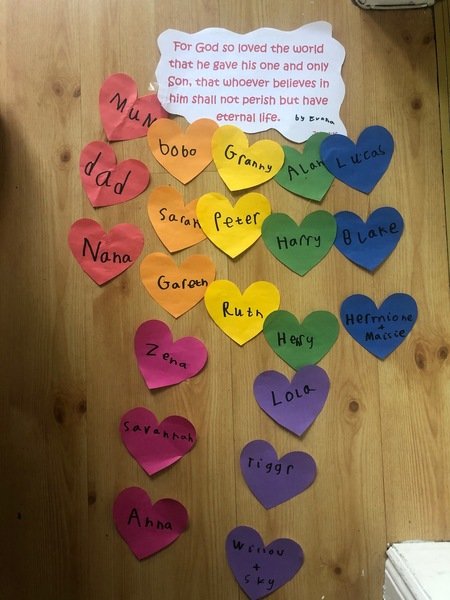 For God so loved the world
that he gave his one and only
Son, that whoever believes in
him shall not perish but have
eternal life.
by Evana
MUM
bobo
Granny
Alan
Lucas
dad
Sarah
Peter
Harry
Blake
Nana
Gareth
Ruth
Henry
Hermione
+
Maisie
Zena
Lola
Savannah
Tiggr
Anna
Willow
+
Sky